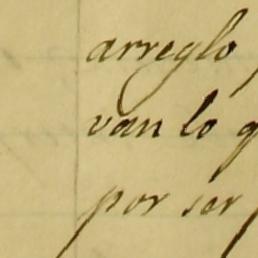 arreglo
van lo q
por ser